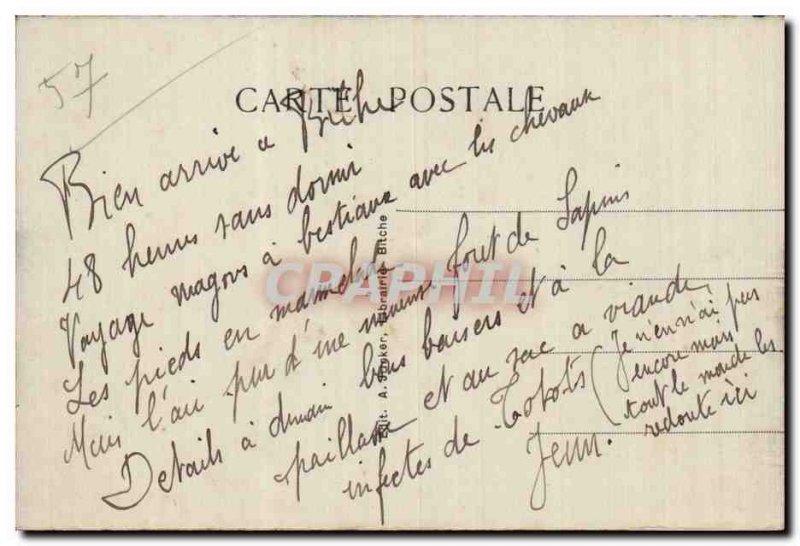 57
CARTE POSTALE
Bien arrivé a Bitche
48 heures sans dormir
Voyage wagons à bestiaux avec les chevaux
Les pieds en
Mais l'air pur d'une foret de Sapins
Details à demain bons baisers et à la
paillasse et au sac a viande
infectes de Totots (Je n'en n'ai pas
encore mais
tout le monde les
redoute ici
Jean.
Edit. A. Librairie, Bitche
CPAPHIL